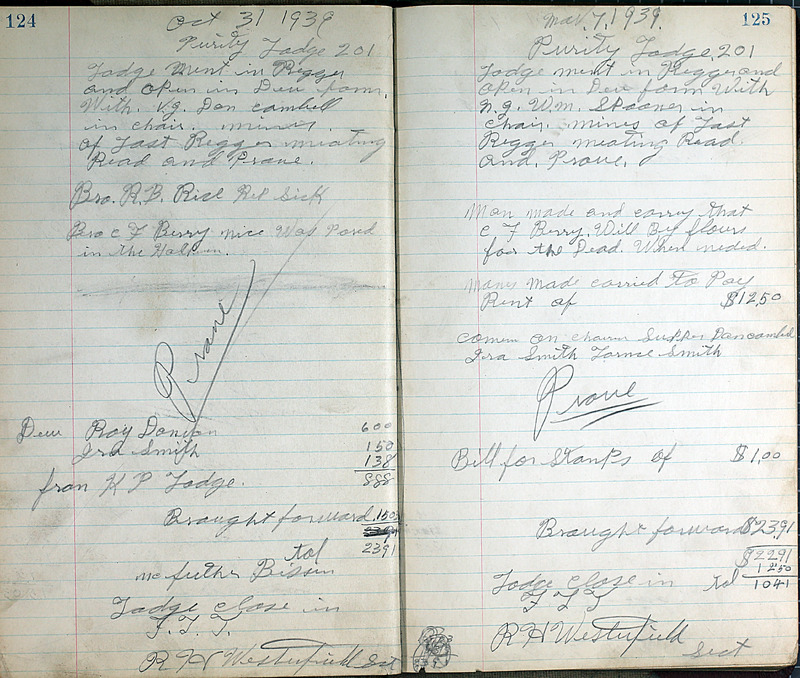 124
Oct 31 1939
Purity Lodge 201
Lodge ment in Regger
and open in Deu form.
With. V.g. Don cambell
in chair. mines.
of Last Regger meating
Read and Prove.
Bro. R.B. Rice Rep Sick
Bro C F Berry nice Was Pased
in the Hall
Prove
Deu Roy 600
Ira Smith 150
138
from K P Lodge. 888
Braught forward. 1503
tol 2391
no futher Bissin
Lodge close in
F. L. T.
R H Westerfield Sect
125
Nov 7, 1939.
Purity Lodge, 201
Lodge ment in Regger and
open in Deu form With
n.g. W.m. Spooner in
chair. mines of Last
Regger meating Read
and. Prove.
Mon made and carry that
C F Berry. Will By flours
for the Dead. When neded.
made carried to Pay
Rent of $12,50
comm on Supper Don cambel
Ira Smith Smith
Prove
Bill for Stamps of $1,00
Braught forward $2391
$2291
1250
Lodge close in tol 1041
F L T
R H Westerfield
Sect